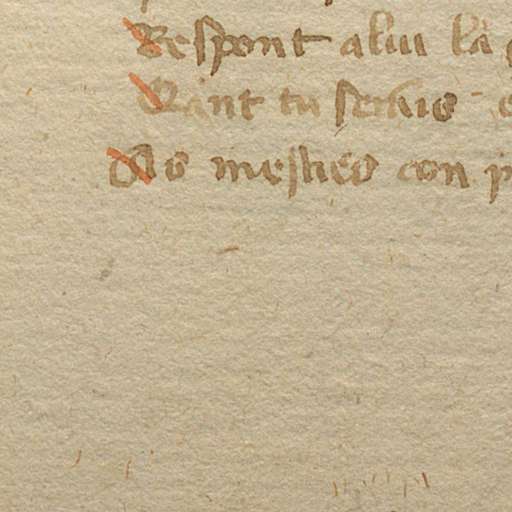 Respont alui la
Qant tu seruis
No mesties con p